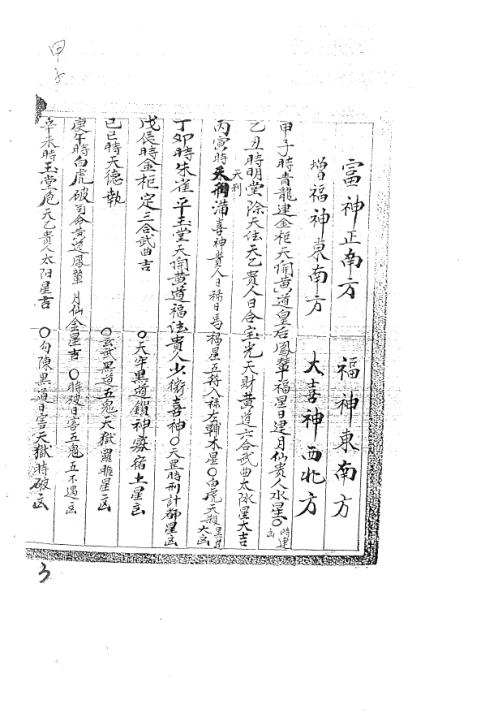 甲子
富神正南方 福神東南方
增福神東南方 大喜神西北方
甲子時青龍建金柜天開黃道皇后鳳輦福星日建月仙貴人水星〇時建凶
乙丑時明堂除天法天乙貴人日合宝光天財黃道六合武曲太陰星大吉
丙寅時天刑滿喜神貴人日祿日馬福星五符入祿左輔木星〇白虎天殺黑道大凶
丁卯時朱雀平玉堂天開黃道福法貴人少微喜神〇天罡時刑計都星凶
戊辰時金柜定三合武曲吉 〇天牢黑道鎖神寡宿土星凶
己巳時天德執 〇玄武黑道五鬼天獄羅睺星凶
庚午時白虎破司命黃道鳳輦月仙金星吉 〇時破日害五鬼五不遇凶
辛未時玉堂危天乙貴人太阳星吉 〇勾陳黑道日害天獄時破凶
3